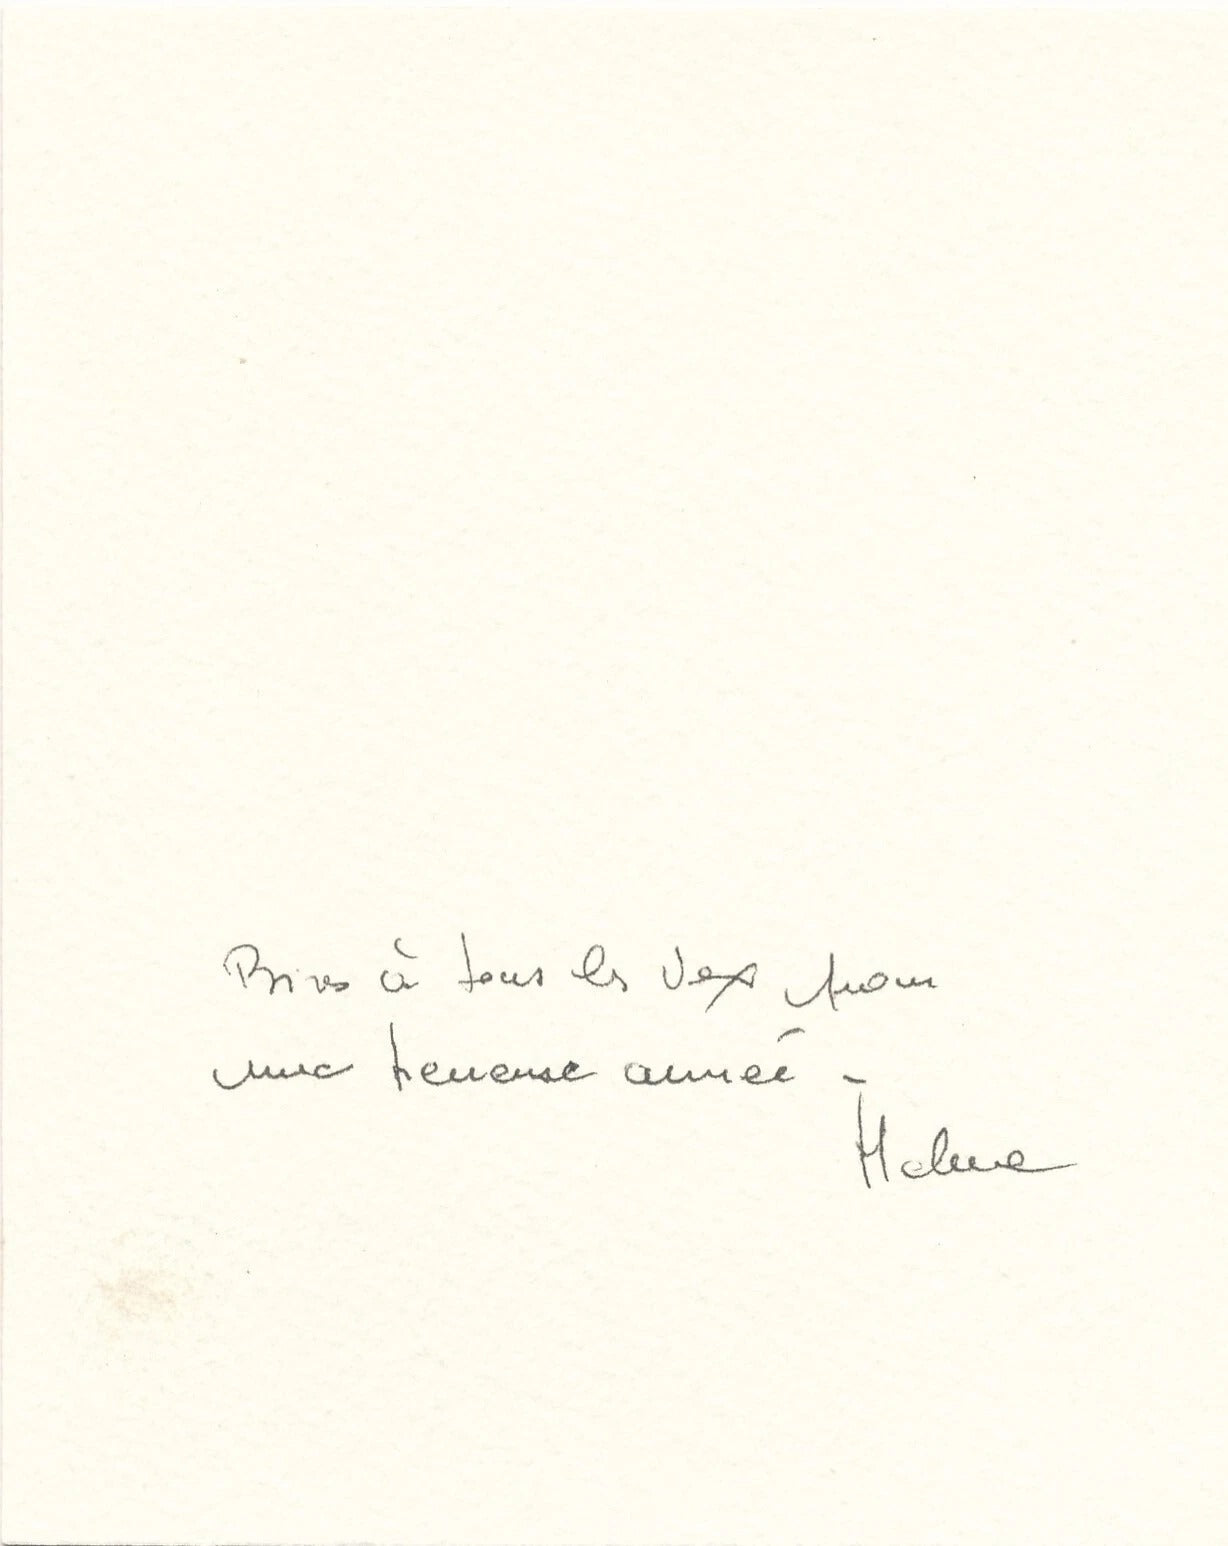 Bises à tous les Vexs pour
une heureuse année -
Helene